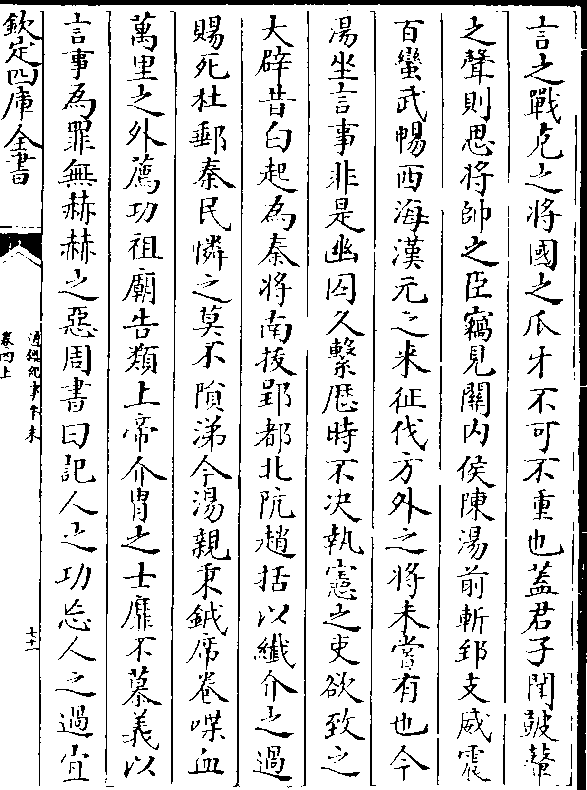 言之戰克之將國之爪牙不可不重也蓋君子聞鼓鼙
之聲則思將帥之臣竊見關内侯陳湯前斬郅支威震
百蠻武暢西海漢元之来征伐方外之將未嘗有也今
湯坐言事非是幽囚久繫歴時不决執憲之吏欲致之
大辟昔白起為秦將南拔郢都北阬趙括以纎介之過
賜死杜郵秦民憐之莫不隕涕今湯親秉鉞席卷喋血
萬里之外薦功祖廟告類上帝介胄之士靡不慕義以
言事為罪無赫赫之惡周書曰記人之功忘人之過宜
欽定四庫全書
通鑑紀事本末
卷四上
七十